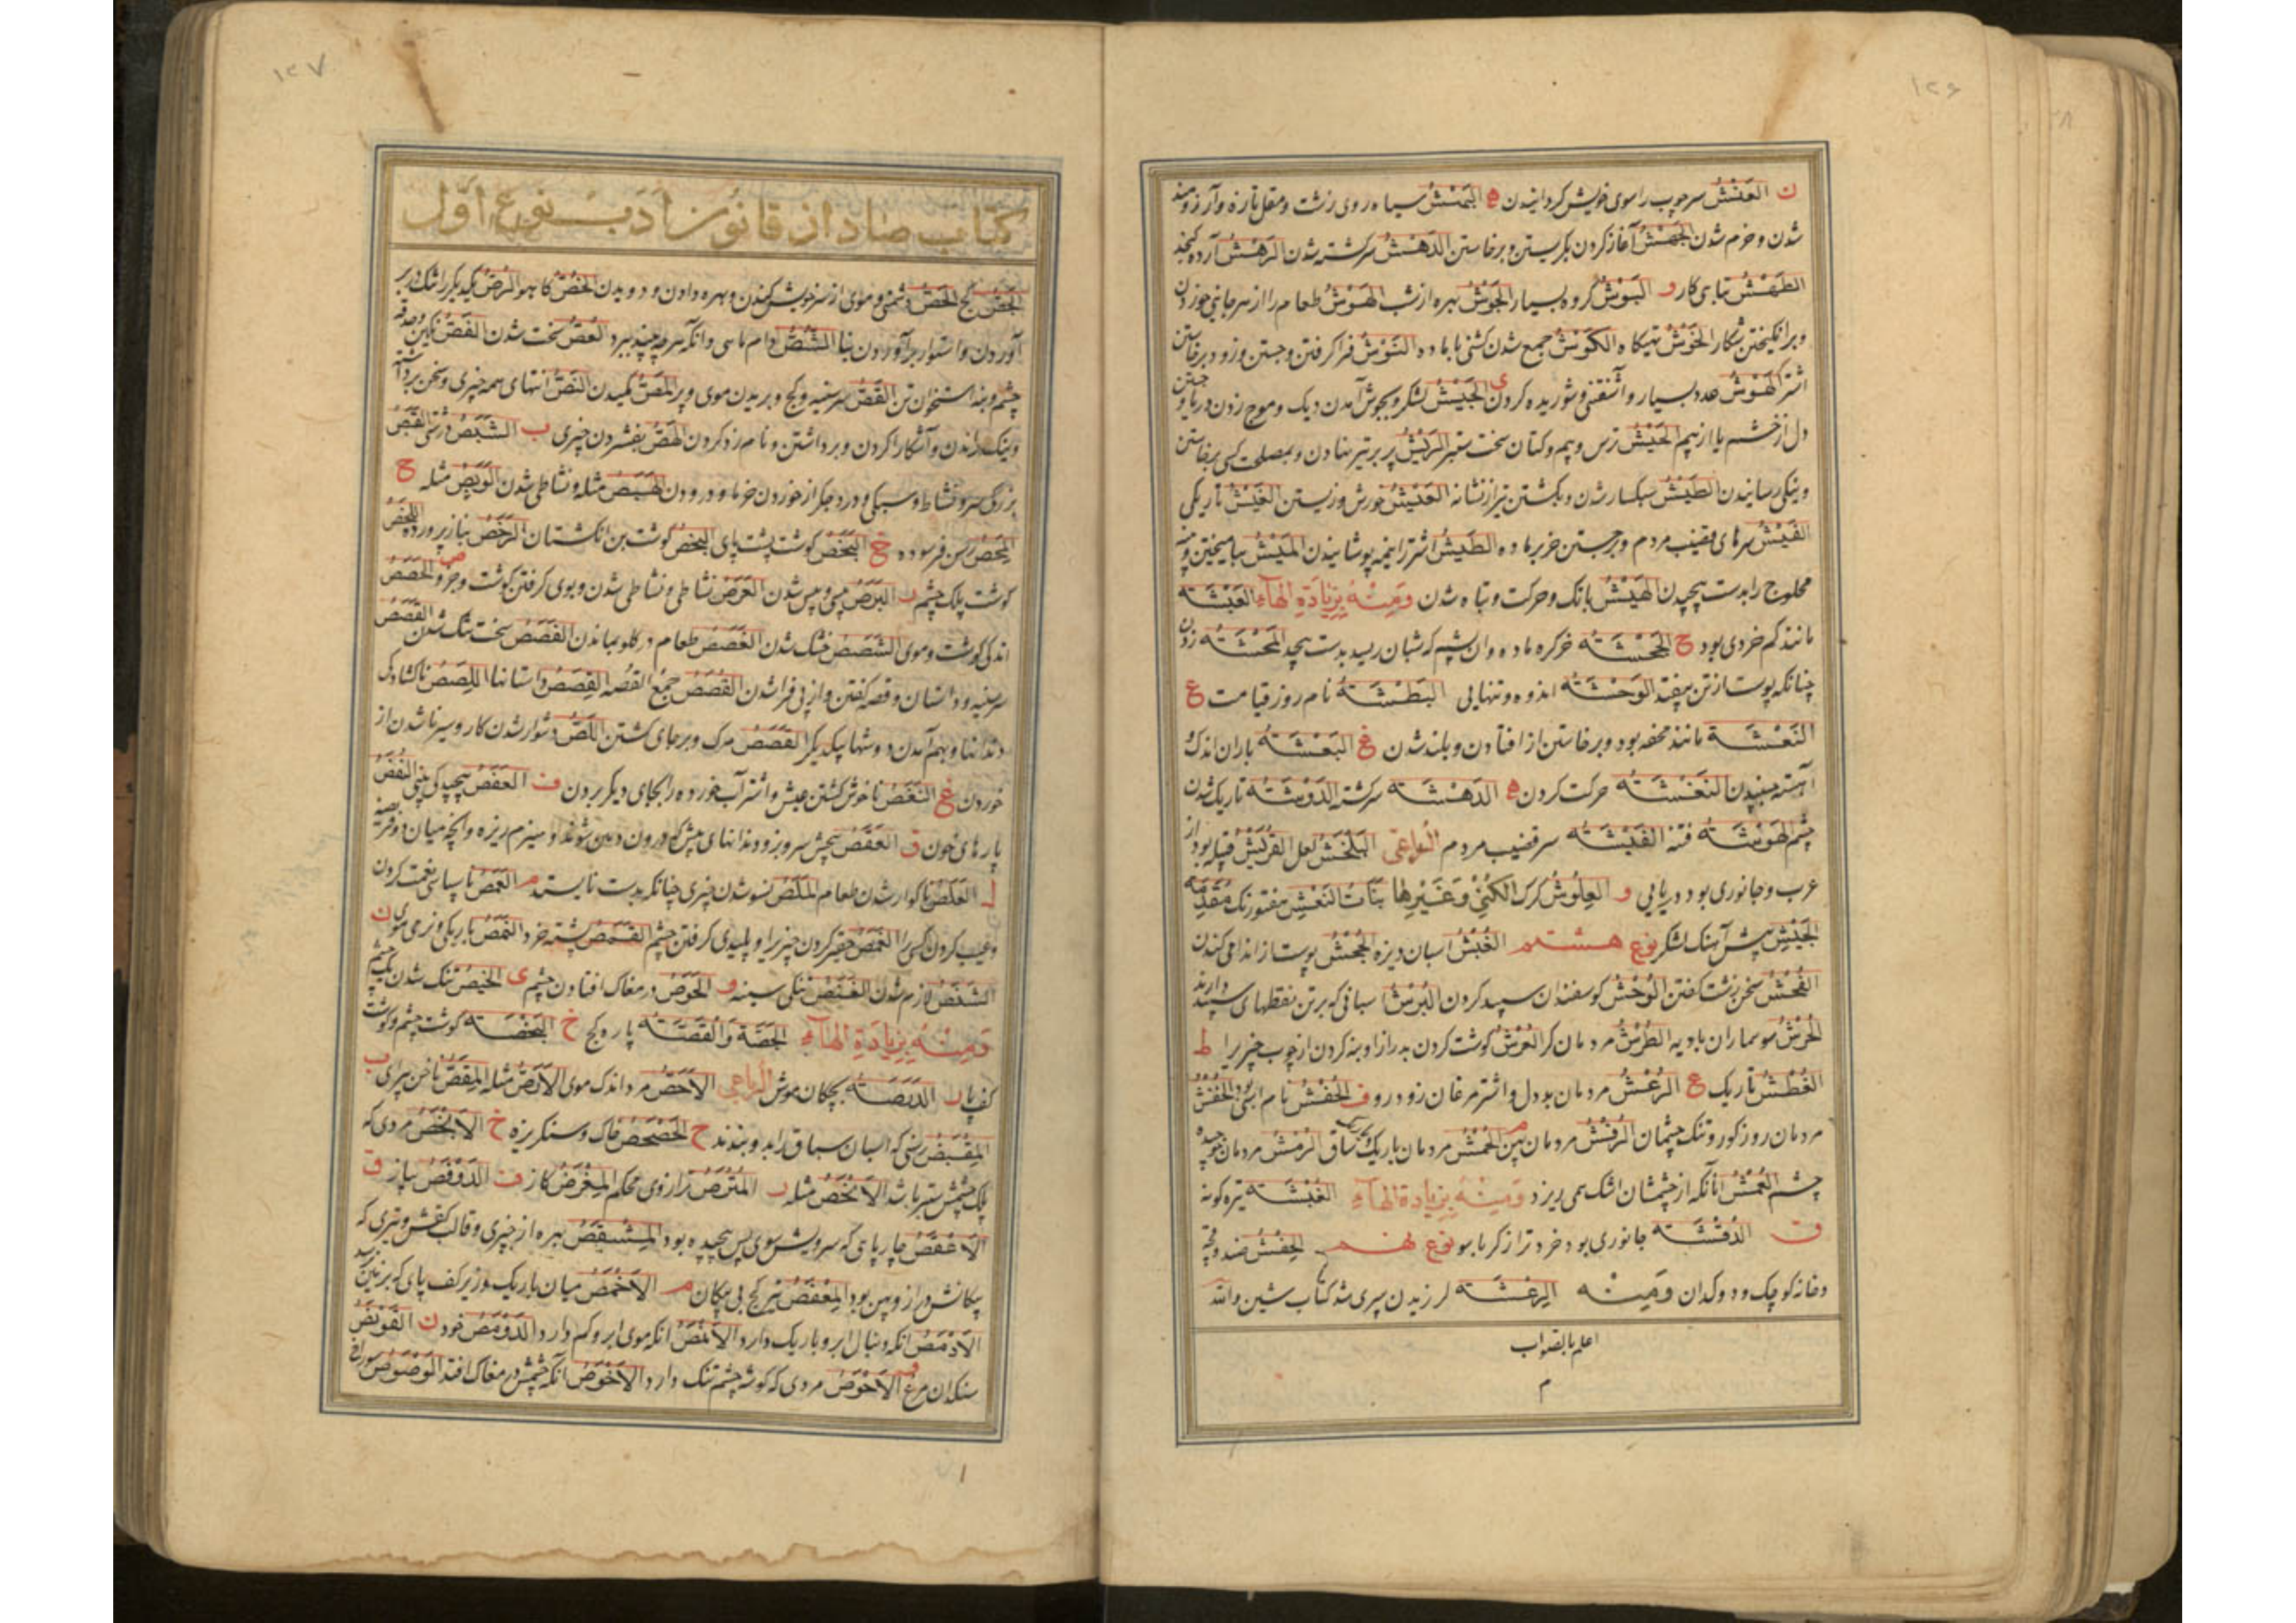 ١٢۶
ن العَنْشُ سر چوب را سوی خویش گردانیدن ه البَهْشُ سیاه روی زشت و مقل تازه و آرزومند
شدن و خرم شدن الجَهْشُ آغاز کردن بگریستن و برخاستن الدَهَشُ سرگشته شدن الرَهْشُ آرده کنجد
الطَهْشُ تباهی کار و البَوْشُ گروه بسیار الجَوْشُ بهره از شب الهَوْشُ طعام را از سر جایی خوردن
و برانگیختن شکار الخَوْشُ تهیگاه الکَوْشُ جمع شدن گشنی با ماده النَوْشُ فرا گرفتن و جستن و زود برخاستن
اشتر الهَوْشُ عدد بسیار و آشفتنی و شوریده کردن ی الجَیْشُ لشکر و بجوش آمدن دیک و موج زدن دریا و
دل از خشم یا از بیم الحَیْشُ ترس و بیم و کتان سخت ستبر الرَیْشُ پر بر تیر نهادن و بمصلحت کسی برخاستن
و نیکی رسانیدن الطَیْشُ سبکسار شدن و بگشتن تیر از نشانه العَیْشُ خورش و زیستن الغَیْشُ تاریکی
الفَیْشُ سرهای قضیب مردم و برجستن خر بر ماده المَیْشُ بیامیختن و پنبه
محلوج را بدست پیچیدن الهَیْشُ بانک و حرکت و تباه شدن وَمِنْهُ بِزِیَادَةِ الهَآءِ العَبْشَه
مانند کم خردی بود ح الجَحْشَه خر کره ماده و آن پشم که شبان ریسد بدست پیچد المَحْشَه زدن
چنانکه پوست از تن بیفتد الوَحْشَه اندوه و تنهایی البَطْشَه نام روز قیامت ع
النَعْشَه مانند محفه بود و برخاستن از افتادن و بلند شدن غ البَغْشَه باران اندک
آهسته جنبیدن النَغْشَه حرکت کردن ه الدَهْشَه سرگشته الدَوْشَه تاریک شدن
چشم الهَوْشَه فتنه الفَیْشَه سر قضیب مردم الرُباعی البَلَخْشُ لعل القُرَیْشُ قبیله بود از
عرب و جانوری بود دریایی و العِلَّوْشُ گرگ الکُنٰی وَغَیْرِهَا بَنَاتُ النَعْشِ هفتورنک مُقَدِّمَة
الجَیْشِ پیش آهنک لشکر نوع هشتم الغُبْشُ اسبان دیزه الجُحْشُ پوست از اندامی کندن
الفُحْشُ سخن زشت گفتن الوُحْشُ گوسفندان سپید کردن البُرْشُ اسبانی که بر تن نقطهای سپید دارند
الحُرْشُ سوسماران بادیه الطُرْشُ مردمان کر العُرْشُ گوشت کردن بدرازا و بنه کردن از چوب چیزی را ط
الغُطْشُ تاریک ع الرُعْشُ مردمان بددل و اشترمرغان زودرو ف الحُفْشُ نام اسبی بود الخُفْشُ
مردمان روز کور و تنک چشمان الرُفْشُ مردمان پهن الحُمْشُ مردمان باریک ساق الرُمْشُ مردمان
چشم العُمْشُ آنانکه از چشمشان اشک همی ریزد وَمِنْهُ بِزِیادة الهآءِ الغُبْشَه تیره گونه
ق الدُقْشَه جانوری بود خردتر از کرباسو نوع نهم الحِفْشُ صندوقچه
و خانه کوچک و دوکدان وَمِنْه الرِعْشَه لرزیدن سپری شد کتاب شین والله
اعلم بالصواب
م
١٢٧
کتاب صاد از قانون ادب نوع اوّل
الجَصُّ گج الحَصُّ دشمنی و موی از سر خویش کندن و بهره دادن و دویدن الخُصُّ کاهو الرَصُّ یکدیگر را تنک در بر
آوردن و استوار برآوردن بنا الشَصُّ دام ماهی و آنکه هر چه بیند ببرد العَصُّ سخت شدن الفَصُّ نگین و حدقه
چشم و بند استخوان تن القَصُّ سر سینه و گج و بریدن موی و پر المَصُّ مکیدن النَصُّ انتهای همه چیزی و سخن برداشته
و نیک راندن و آشکارا کردن و برداشتن و نامزد کردن الهَصُّ بفشردن چیزی ب الشَبَصُ درشتی القَبَصُ
بزرگی سر و نشاط و سبکی و درد جگر از خوردن خرما و درودن الهَبَصُ مثله و نشاطی شدن الوَبَصُ مثله ح
المَحَصُ رسن فرسوده خ البَخَصُ گوشت پشت پای البَخَصُ گوشت بن انگشتان الرَخَصُ بناز پرورده اللَخَصُ
گوشت پلک چشم ر البَرَصُ پیسی و پیس شدن العَرَصُ نشاطی و نشاطی شدن و بوی گرفتن گوشت و جز و ص الحَصَصُ
اندکی گوشت و موی الشَصَصُ خشک شدن الغَصَصُ طعام در گلو بماندن القَصَصُ سخت تنک شدن القَصَصُ
سر سینه و داستان و قصه گفتن و از پی فرا شدن القُصَصُ جمع القُصّه القِصَصُ داستانها اللَصَصُ ناگشادگی
دندانها و بهم آمدن دوشها بیکدیگر القَصَصُ مرک و بر جای گشتن اللَصُّ دشوار شدن کار و سیر ناشدن از
خوردن غ النَغَصُ ناخوش گشتن عیش و اشتر آب خورده را بجای دیگر بردن ف العَفَصُ پیچیدگی بینی النَفَصُ
پارهای خون ق العَقَصُ پیچش سرو بز و دندانهای پیش که درون دهن شوند و هیزم ریزه و آنچه میان دو فریضه
ل العَلَصُ ناگوار شدن طعام المَلَصُ نسو شدن چیزی چنانکه بدست نایستد م الغَمَصُ ناسپاسی نعمت کردن
و عیب کردن کسی را الغَمَصُ حقیر کردن چیزی را و پلیدی گرفتن چشم القَمَصُ پشه خرد النَمَصُ باریکی و نرمی موی ن
الشَنَصُ لازم شدن الغَنَصُ تنکی سینه و الحَوَصُ در مغاک افتادن چشم ی الحَیَصُ تنک شدن یک چشم
وَمِنْهُ بِزِیَادَةِ الهَآءِ الجَصَّه وَالقَصَّه پاره گج خ البَخَصَه گوشت چشم و گوشت
کف پا ر الدَرَصَه بچگان موش الرُباعی الاَحَصُّ مرد اندک موی الاَرَصُّ مثله المِقَصُّ ناخن پرای ب
المِقْبَصُ رسنی که اسبان سباق را بدو ببندند ح الحَصْحَصُ خاک و سنگریزه خ الاَبْخَصُ مردی که
پلک چشمش ستبر باشد الاَلْخَصُ مثله ر المُتْرَصُ ترازوی محکم المِفْرَصُ گاز ف الدَوْفَصُ پیاز ق
الاَعْقَصُ چارپایی که سرویش سوی پس پیچیده بود المِشْقَصُ بهره از چیزی و قالب کفش و تیری که
پیکانش دراز و پهن بود المِعْقَصُ تیر کج بی پیکان م الاَخْمَصُ میان باریک و زیر کف پای که بر زمین نرسد
الاَرْمَصُ آنکه دنبال ابرو باریک دارد الاَنْمَصُ آنکه موی ابرو کم دارد الدَوْمَصُ خود ن القَوْنَصُ
سنکدان مرغ و الاَحْوَصُ مردی که گوشه چشم تنک دارد الاَخْوَصُ آنکه چشمش در مغاک افتد الوَصْوَصُ سوراخ